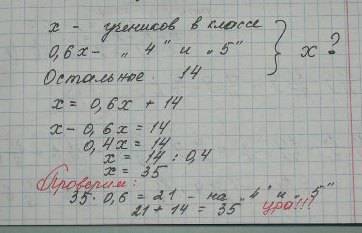 x - учеников в классе
0,6x - „ 4 " и „ 5 "
Остальное 14
x ?
x = 0,6x + 14
x - 0,6x = 14
0,4x = 14
x = 14 : 0,4
x = 35
Проверим:
35 · 0,6 = 21 - на „4" и „5"
21 + 14 = 35 ура!!!